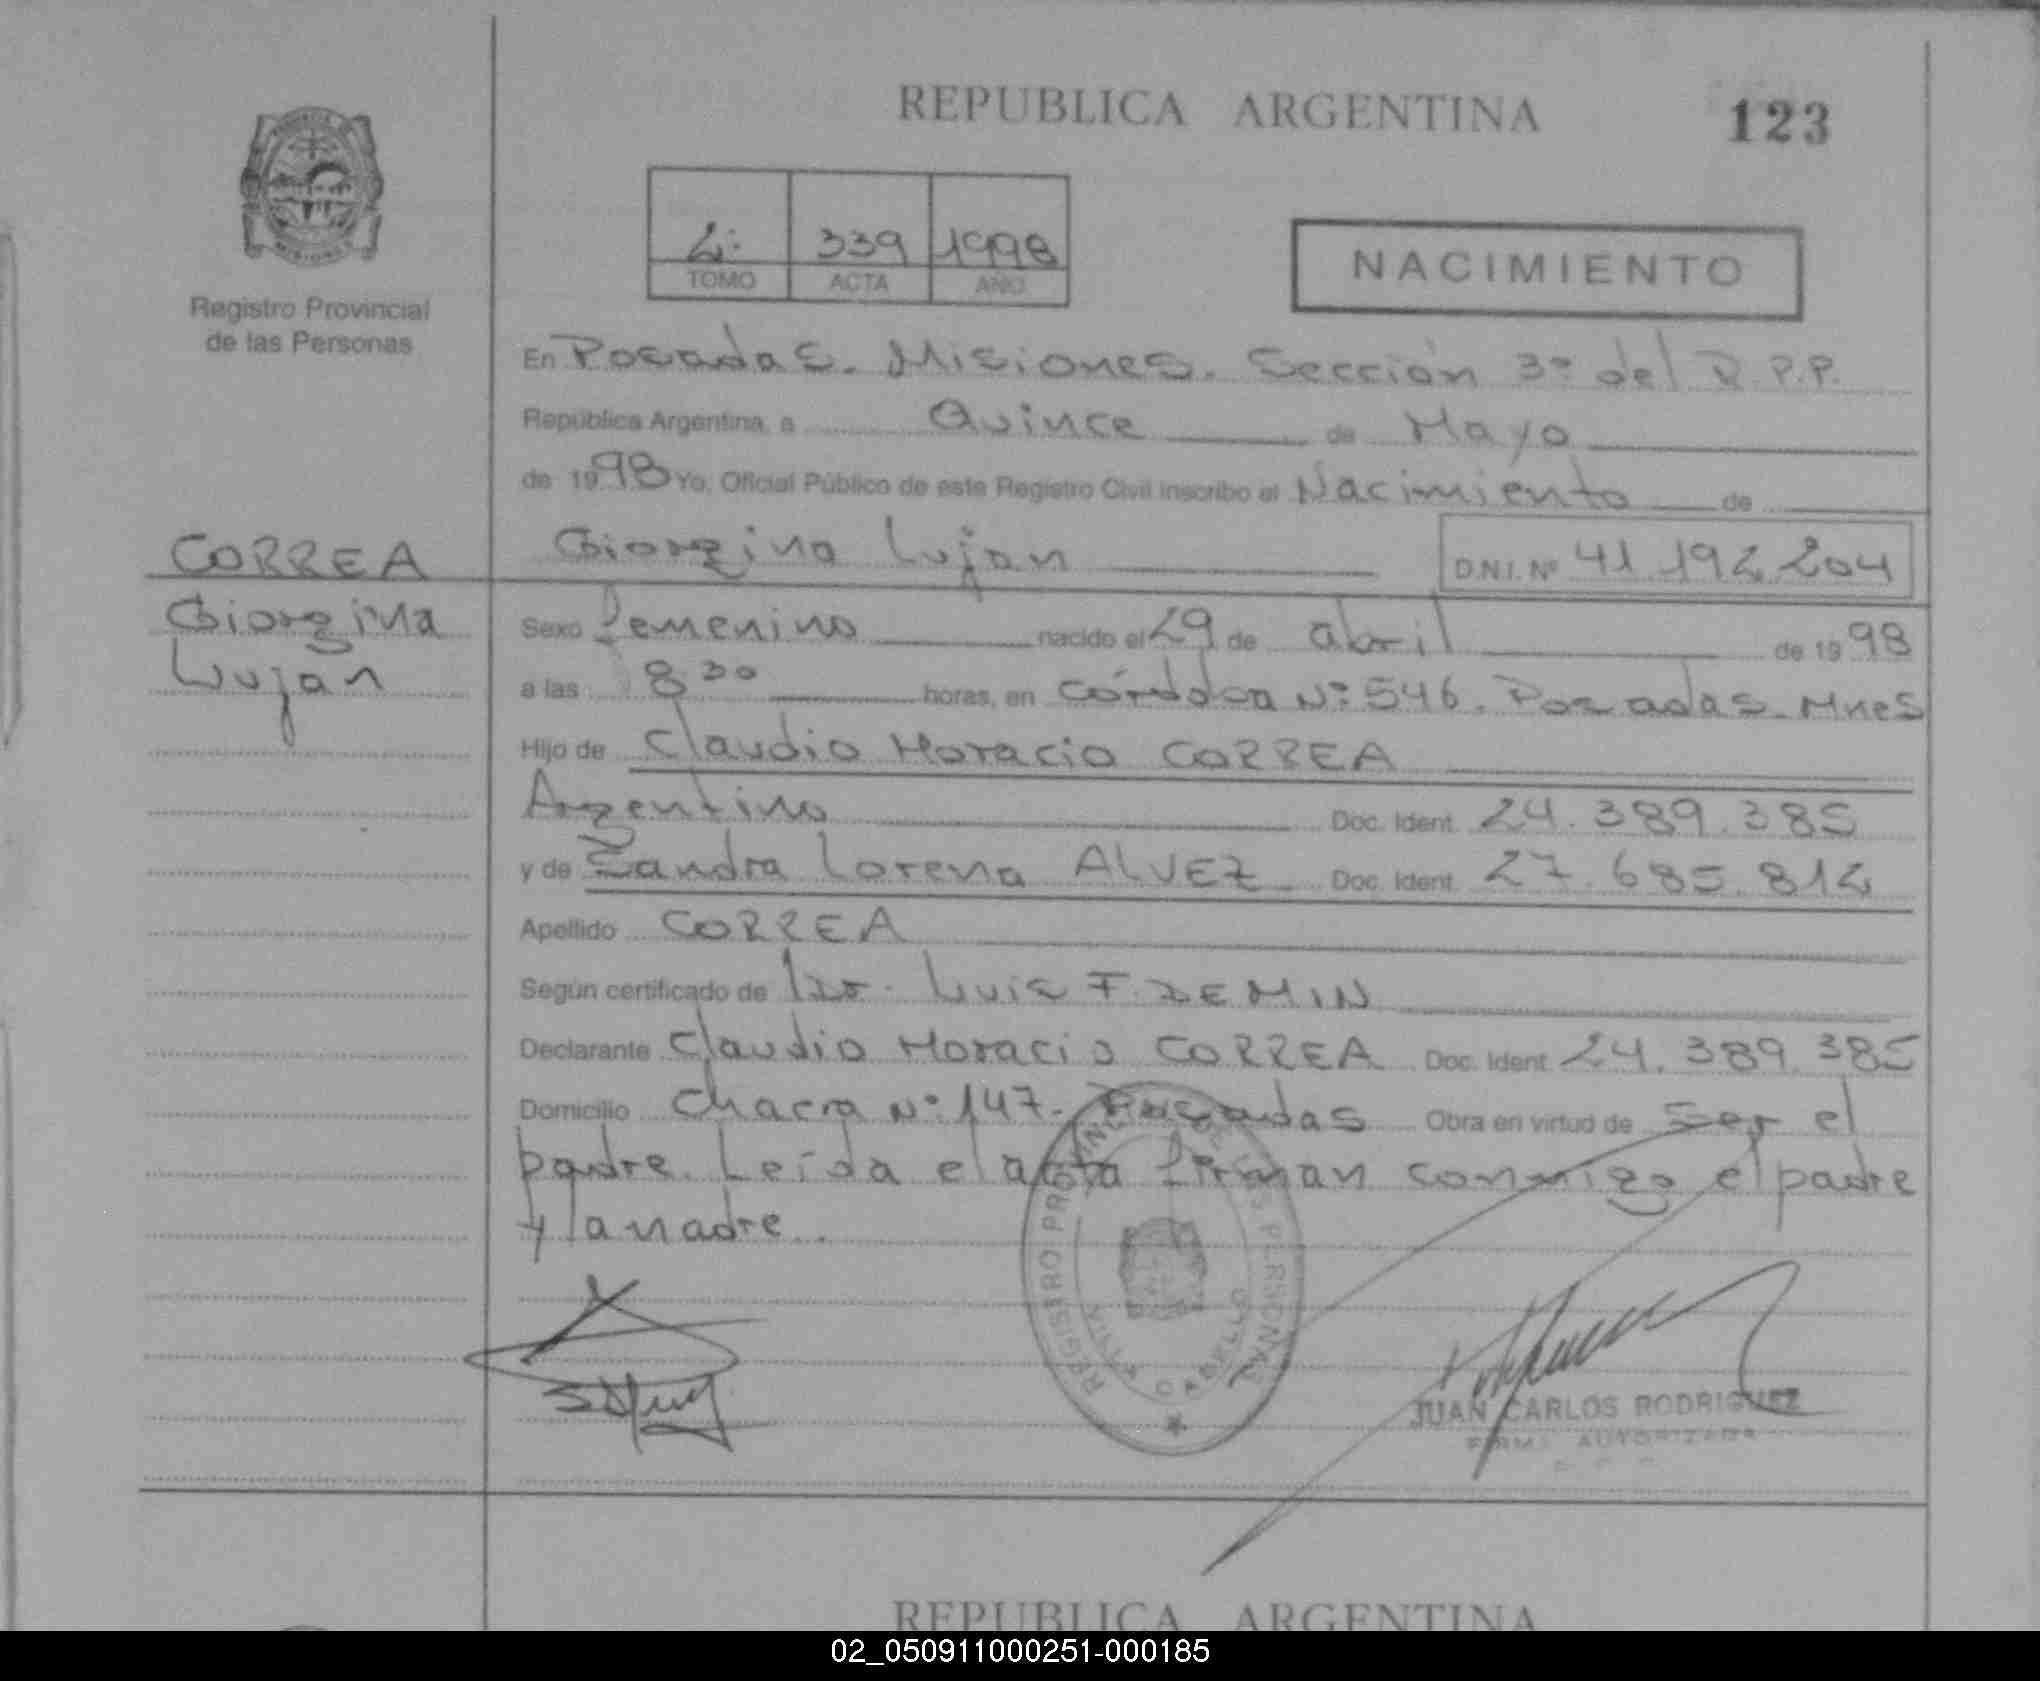 REPUBLICA ARGENTINA
123
2º 339 1998
TOMO ACTA AÑO
NACIMIENTO
MISIONES
Registro Provincial
de las Personas
En Posadas. Misiones. Sección 3º del R.P.P.
República Argentina, a Quince de Mayo
de 1998 Yo, Oficial Público de este Registro Civil inscribo el Nacimiento de
CORREA
Giorgina Lujan
D.N.I. Nº 41.192.204
Giorgina
Lujan
Sexo femenino nacido el 29 de abril de 1998
a las 8 30 horas, en Córdoba Nº 546. Posadas. Mnes
Hijo de Claudio Horacio CORREA
Argentino Doc. Ident. 24.389.385
y de Sandra Lorena ALVEZ Doc. Ident. 27.685.812
Apellido CORREA
Según certificado de Dr. Luis F. DEMIN
Declarante Claudio Horacio CORREA Doc. Ident. 24.389.385
Domicilio Chacra Nº 147. Posadas Obra en virtud de Ser el
padre. Leída el acta firman conmigo el padre
y la madre..
REGISTRO PROVINCIAL DE LAS PERSONAS
VILLA CABELLO
JUAN CARLOS RODRIGUEZ
FIRMA AUTORIZADA
REPUBLICA ARGENTINA
02_050911000251-000185